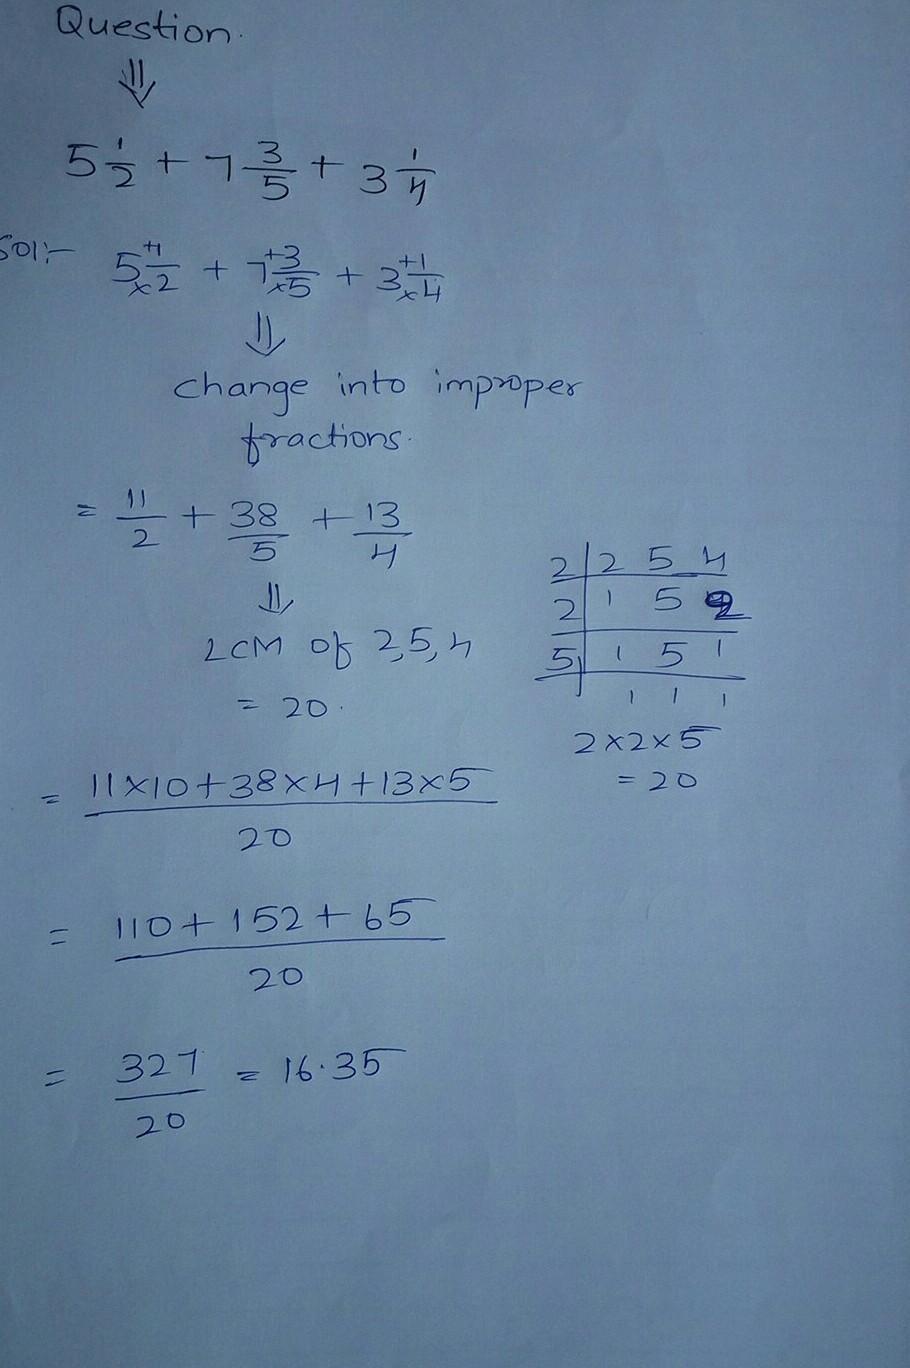 Question.
⇓
5 1/2 + 7 3/5 + 3 1/4
Sol:- 5 +1/×2 + 7 +3/×5 + 3 +1/×4
⇓
change into improper
fractions.
= 11/2 + 38/5 + 13/4
⇓
LCM of 2,5,4
= 20.
2 | 2 5 4
2 | 1 5 2
5 | 1 5 1
1 1 1
2×2×5
= 20
= 11×10+38×4+13×5 / 20
= 110+152+65 / 20
= 327/20 = 16.35